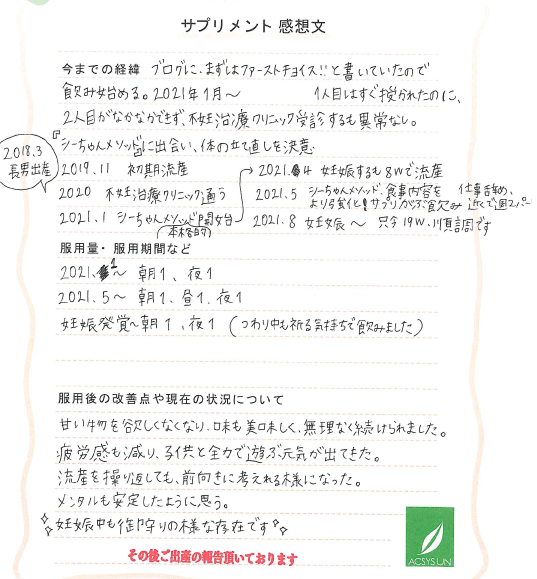 サプリメント 感想文
今までの経緯 ブログに、まずはファーストチョイス!!と書いていたので
飲み始める。2021年1月〜 1人目はすぐ授かれたのに、
2人目がなかなかできず、不妊治療クリニック受診するも異常なし。
『シーちゃんメソッド』に出会い、体の立て直しを決意
2018.3
長男出産
2019.11 初期流産
2020 不妊治療クリニック通う
2021.1 シーちゃんメソッド開始
本格的
2021.4 妊娠するも8Wで流産
2021.5 シーちゃんメソッド、食事内容を 仕事辞め、
より強化!サプリがぶ飲み 近くで週2パート
2021.8 妊娠〜 只今19W、順調です
服用量・服用期間など
2021.1〜 朝1、夜1
2021.5〜 朝1、昼1、夜1
妊娠発覚〜朝1、夜1 (つわり中も祈る気持ちで飲みました)
服用後の改善点や現在の状況について
甘い物を欲しくなくなり、味も美味しく、無理なく続けられました。
疲労感も減り、子供と全力で遊ぶ元気が出てきた。
流産を繰り返しても、前向きに考えれる様になった。
メンタルも安定したように思う。
妊娠中も御守りの様な存在です
その後ご出産の報告頂いております
ACSYSUN